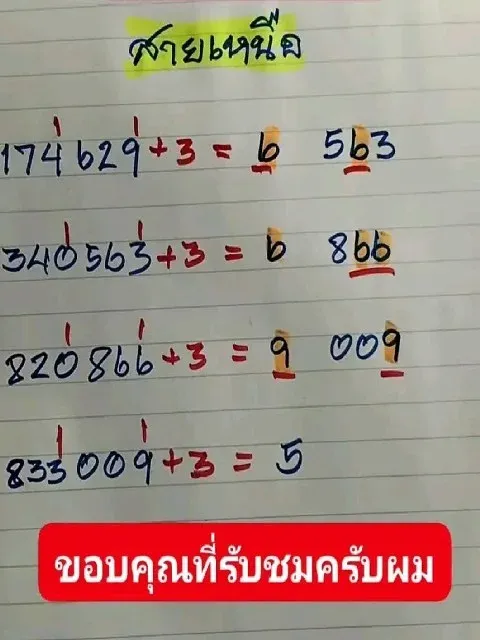 สายเหนือ
174629+3 = 6 563
340563+3 = 6 866
820866+3 = 9 009
833009+3 = 5
ขอบคุณที่รับชมครับผม